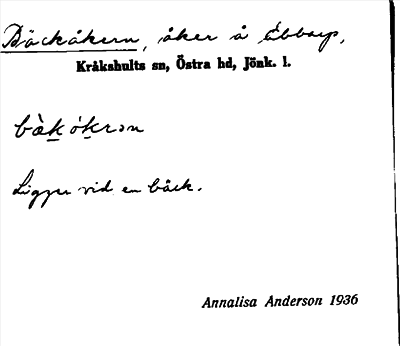 Bäckåkern, åker å Ebbarp,
Kråkshults sn, Östra hd, Jönk. l.
bàk ókrən
Ligger vid en bäck.
Annalisa Anderson 1936